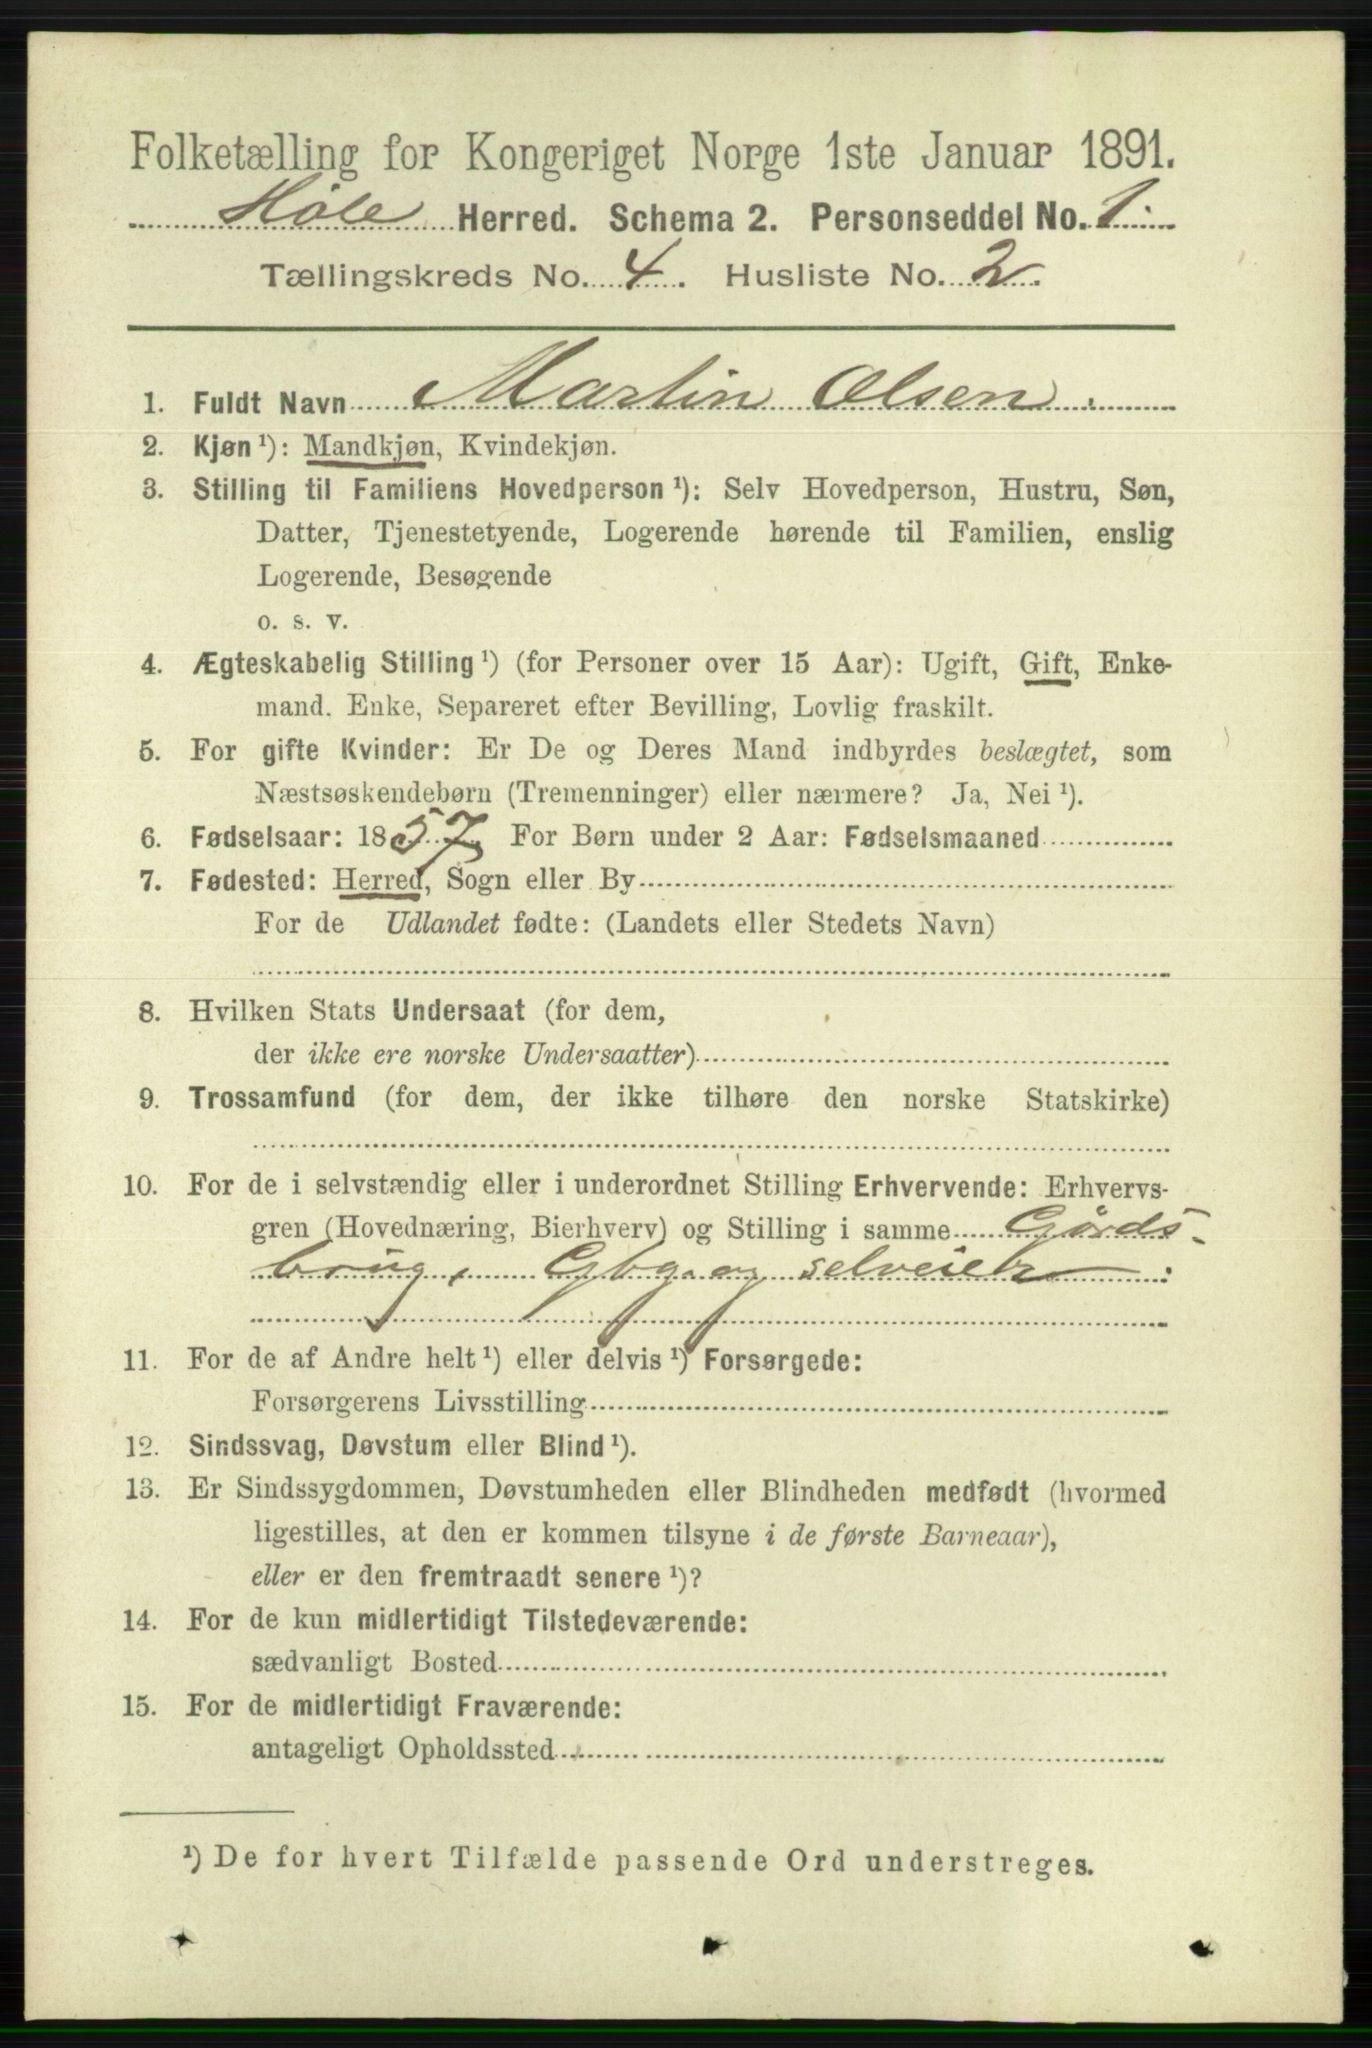 Folketælling for Kongeriget Norge 1ste Januar 1891.
Høle Herred. Schema 2. Personseddel No. 1.
Tællingskreds No. 4. Husliste No. 2.
1. Fuldt Navn Martin Olsen.
2. Kjøn ¹): Mandkjøn, Kvindekjøn.
3. Stilling til Familiens Hovedperson ¹): Selv Hovedperson, Hustru, Søn,
Datter, Tjenestetyende, Logerende hørende til Familien, enslig
Logerende, Besøgende
o. s. v.
4. Ægteskabelig Stilling ¹) (for Personer over 15 Aar): Ugift, Gift, Enke-
mand. Enke, Separeret efter Bevilling, Lovlig fraskilt.
5. For gifte Kvinder: Er De og Deres Mand indbyrdes beslægtet, som
Næstsøskendebørn (Tremenninger) eller nærmere? Ja, Nei ¹).
6. Fødselsaar: 1857, For Børn under 2 Aar: Fødselsmaaned
7. Fødested: Herred, Sogn eller By
For de Udlandet fødte: (Landets eller Stedets Navn)
8. Hvilken Stats Undersaat (for dem,
der ikke ere norske Undersaatter)
9. Trossamfund (for dem, der ikke tilhøre den norske Statskirke)
10. For de i selvstændig eller i underordnet Stilling Erhvervende: Erhvervs-
gren (Hovednæring, Bierhverv) og Stilling i samme Gårds-
brug, Gbg. og selveier.
11. For de af Andre helt ¹) eller delvis ¹) Forsørgede:
Forsørgerens Livsstilling
12. Sindssvag, Døvstum eller Blind ¹).
13. Er Sindssygdommen, Døvstumheden eller Blindheden medfødt (hvormed
ligestilles, at den er kommen tilsyne i de første Barneaar),
eller er den fremtraadt senere ¹)?
14. For de kun midlertidigt Tilstedeværende:
sædvanligt Bosted
15. For de midlertidigt Fraværende:
antageligt Opholdssted
¹) De for hvert Tilfælde passende Ord understreges.